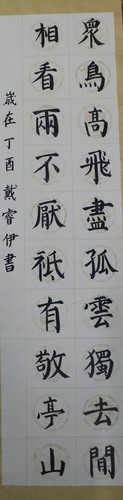 眾鳥高飛盡孤雲獨去閒
相看兩不厭祗有敬亭山
歲在丁酉戴睿伊書